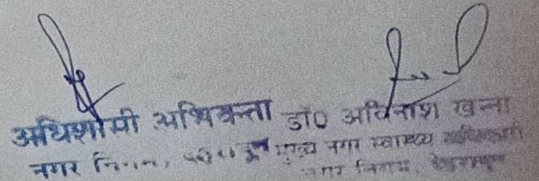 अधिशासी अभियन्ता डॉ० अविनाश खन्ना
नगर निगम, देहरादून मुख्य नगर स्वास्थ्य अधिकारी
नगर निगम, देहरादून